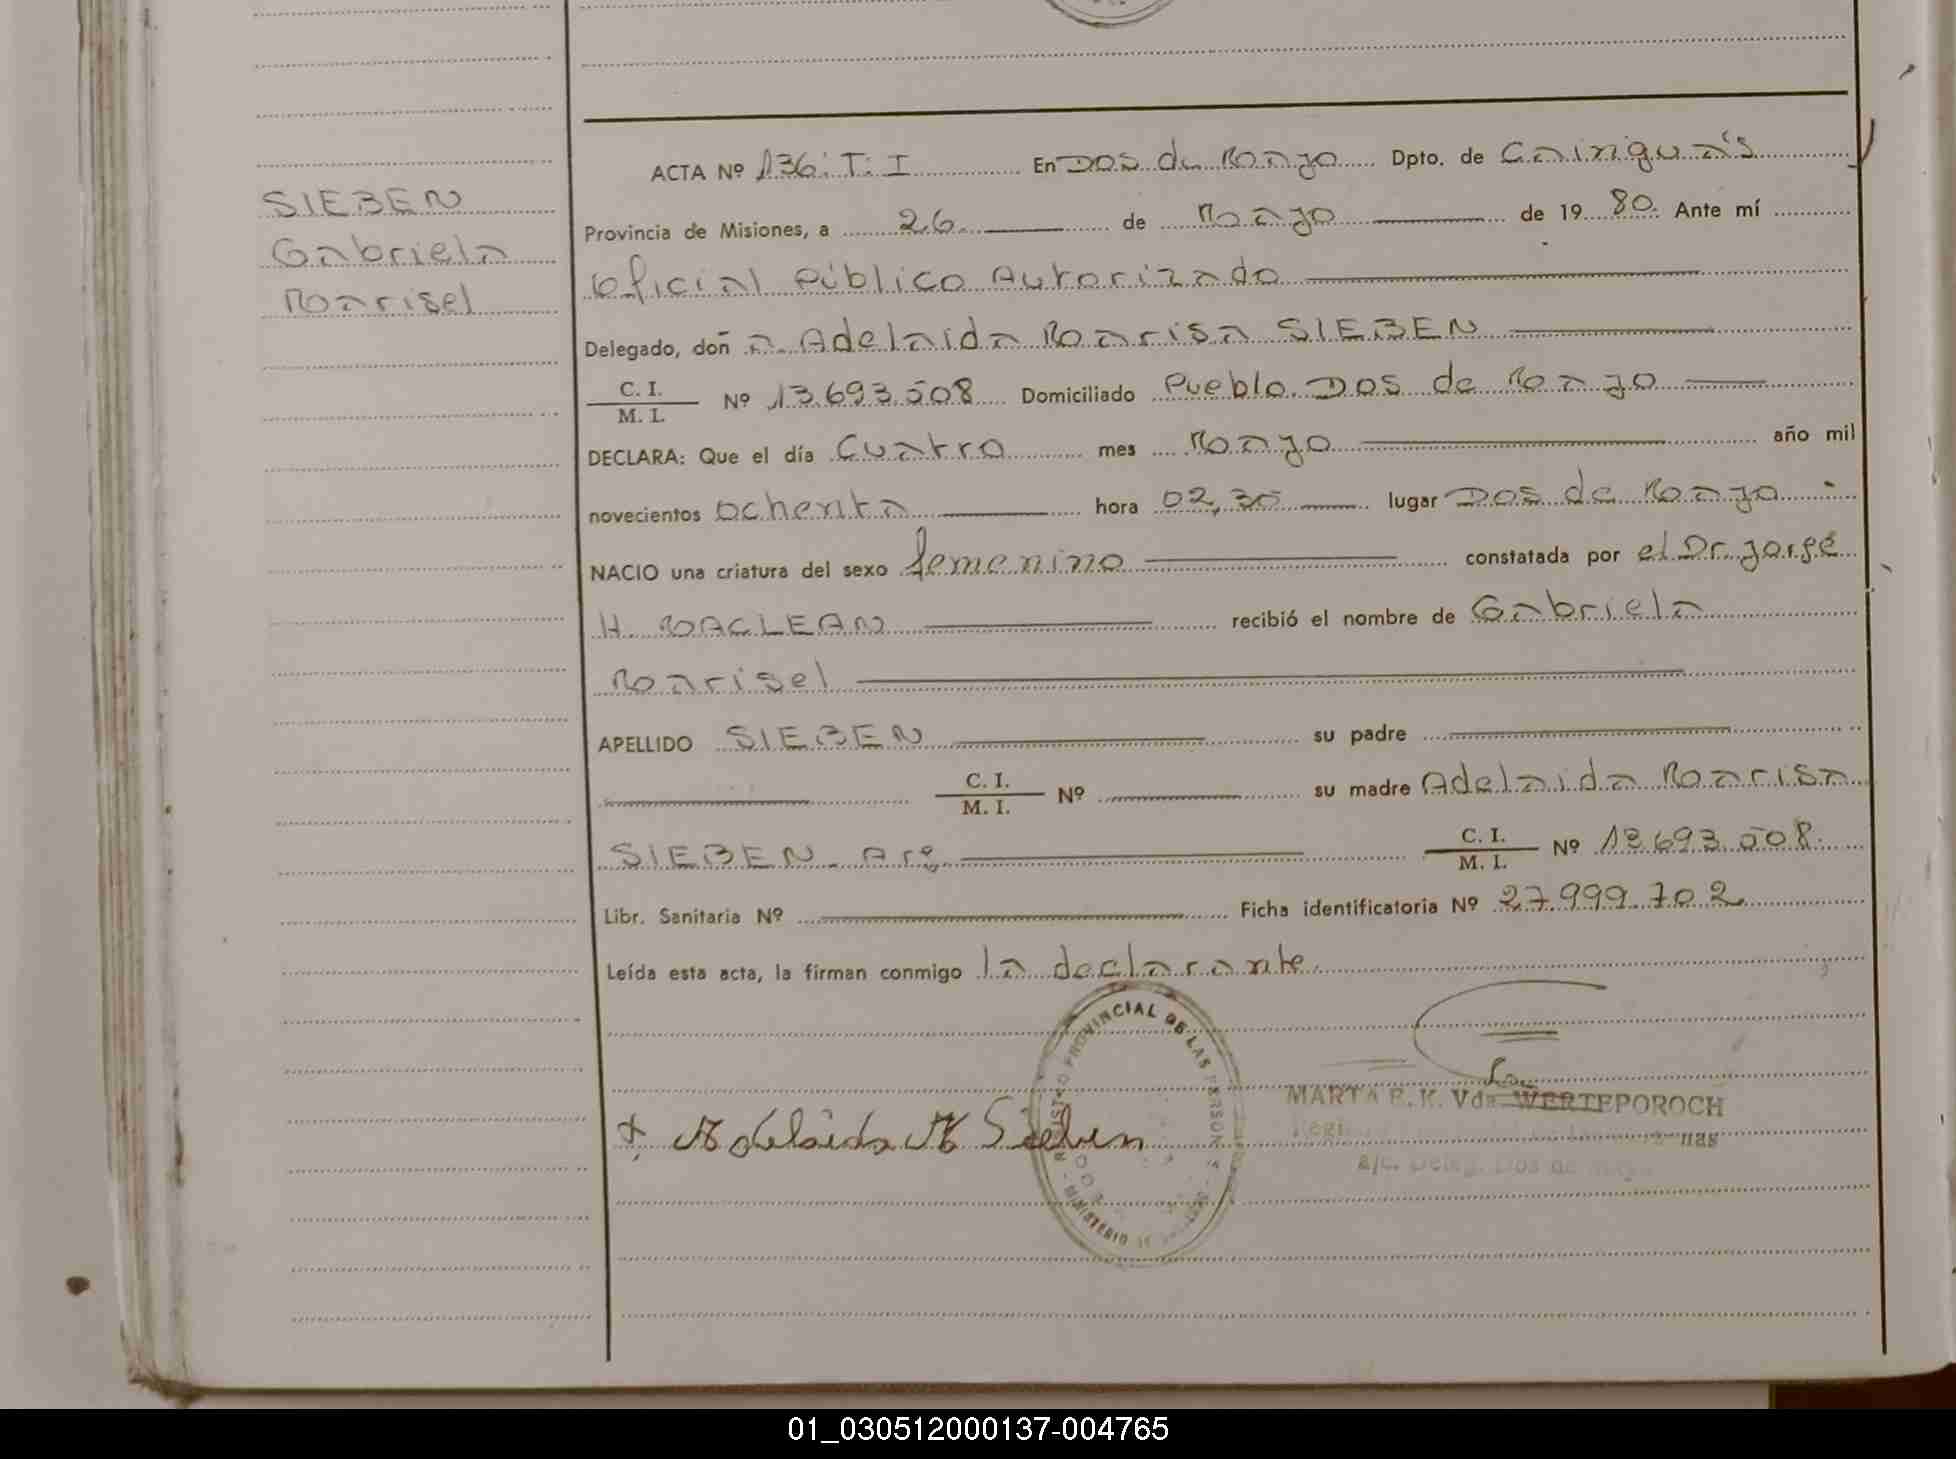 SIEBEN
Gabriela
Marisel
ACTA Nº 136: T: I En Dos de Mayo Dpto. de Cainguás
Provincia de Misiones, a 26 de Mayo de 1980. Ante mí
Oficial Público Autorizado
Delegado, doñ a. Adelaida Marisa SIEBEN
C. I.
M. I. Nº 13.693.508 Domiciliado Pueblo Dos de Mayo
DECLARA: Que el día Cuatro mes Mayo año mil
novecientos ochenta hora 02,30 lugar Dos de Mayo
NACIO una criatura del sexo femenino constatada por el Dr. Jorge
H. MACLEAN recibió el nombre de Gabriela
Marisel
APELLIDO SIEBEN su padre
C. I.
M. I. Nº su madre Adelaida Marisa
SIEBEN. Arg. C. I.
M. I. Nº 13.693.508.
Libr. Sanitaria Nº Ficha identificatoria Nº 27.999.702
Leída esta acta, la firman conmigo la declarante.
REGISTRO PROVINCIAL DE LAS PERSONAS
MINISTERIO DE
Adelaida M Sieben
MARTA R. K. Vda. WERTEPOROCH
a/c. Deleg. Dos de Mayo
01_030512000137-004765